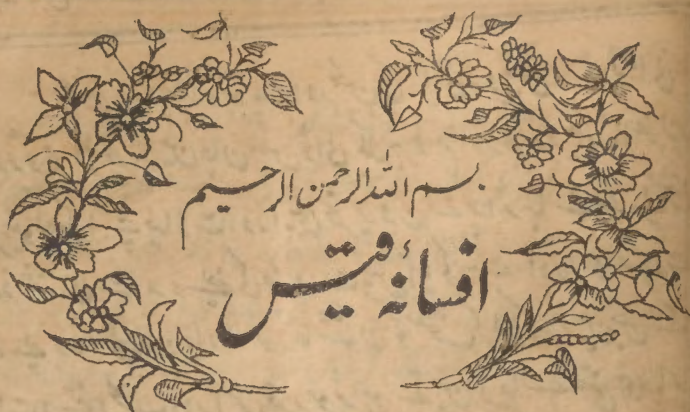 بسم اللہ الرحمٰن الرحیم
افسانۂ قیس